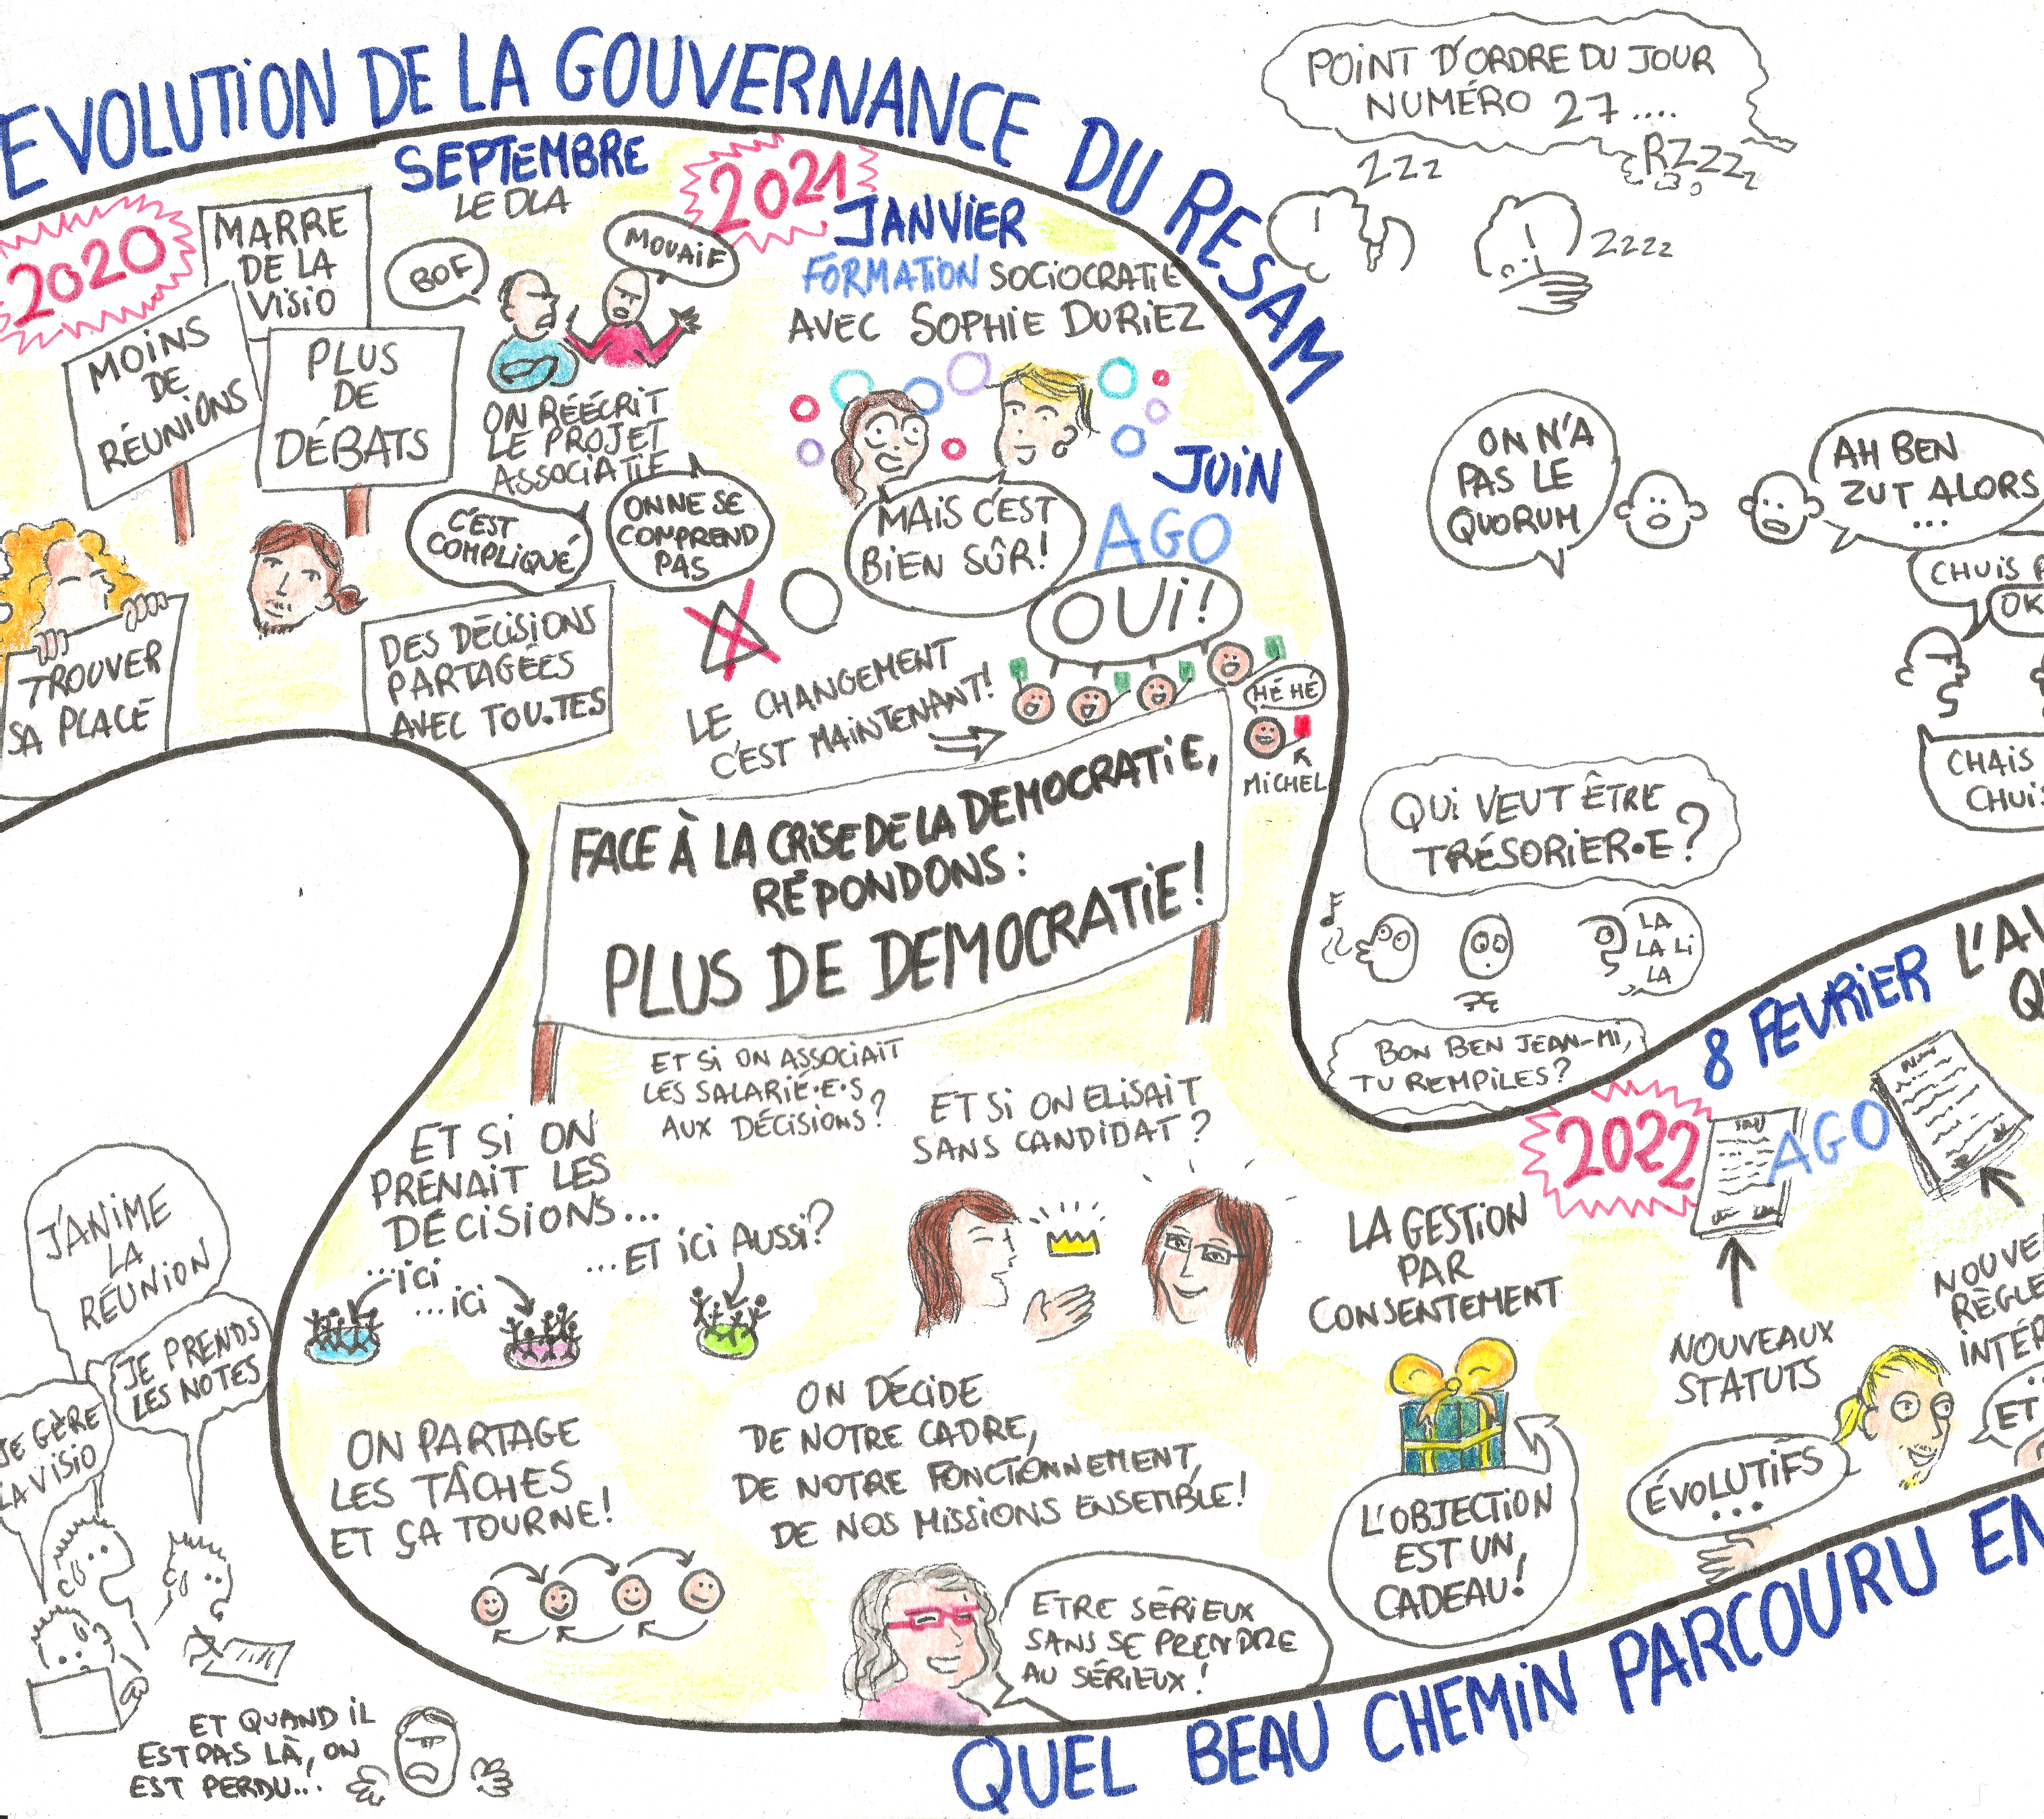 EVOLUTION DE LA GOUVERNANCE DU RESAM
2020
MARRE
DE LA
VISIO
MOINS
DE
RÉUNIONS
PLUS
DE
DÉBATS
TROUVER
SA PLACE
SEPTEMBRE
LE DLA
BOF
MOUAIF
ON RÉÉCRIT
LE PROJET
ASSOCIATIF
C'EST
COMPLIQUÉ
ON NE SE
COMPREND
PAS
DES DÉCISIONS
PARTAGÉES
AVEC TOU.TES
2021
JANVIER
FORMATION SOCIOCRATIE
AVEC SOPHIE DURIEZ
MAIS C'EST
BIEN SÛR!
LE CHANGEMENT
C'EST MAINTENANT!
JUIN
AGO
OUI!
HÉ HÉ
MICHEL
FACE À LA CRISE DE LA DEMOCRATIE,
RÉPONDONS:
PLUS DE DEMOCRATIE!
POINT D'ORDRE DU JOUR
NUMÉRO 27....
ZZZ
RZZZZ
ZZZZ
ON N'A
PAS LE
QUORUM
AH BEN
ZUT ALORS
...
CHUIS
OK
CHAIS
CHUIS
QUI VEUT ÊTRE
TRÉSORIER•E?
LA
LA LI
LA
BON BEN JEAN-MI,
TU REMPILES?
ET SI ON ASSOCIAIT
LES SALARIÉ•E•S
AUX DÉCISIONS?
ET SI ON ELISAIT
SANS CANDIDAT?
ET SI ON
PRENAIT LES
DÉCISIONS...
...ICI
...ICI
...ET ICI AUSSI?
ON PARTAGE
LES TÂCHES
ET ÇA TOURNE!
ON DÉCIDE
DE NOTRE CADRE,
DE NOTRE FONCTIONNEMENT,
DE NOS MISSIONS ENSEMBLE!
ETRE SÉRIEUX
SANS SE PRENDRE
AU SÉRIEUX!
LA GESTION
PAR
CONSENTEMENT
L'OBJECTION
EST UN
CADEAU!
2022
8 FEVRIER
AGO
NOUVEAUX
STATUTS
ÉVOLUTIFS
...
ET
J'ANIME
LA
RÉUNION
JE PRENDS
LES NOTES
JE GÈRE
LA VISIO
ET QUAND IL
EST PAS LÀ, ON
EST PERDU...
QUEL BEAU CHEMIN PARCOURU EN